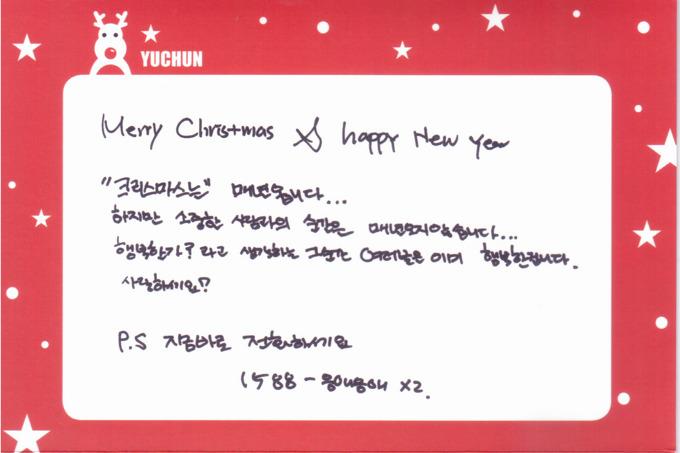 YUCHUN
Merry Christmas & happy New year
"크리스마스는" 매년옵니다...
하지만 소중한 사람과의 순간은 매년오지않습니다...
행복한가? 라고 생각하는 그순간 여러분은 이미 행복한겁니다.
사랑하세요!?
P.S 지금바로 전화하세요
1588 - 용애용애 X2.